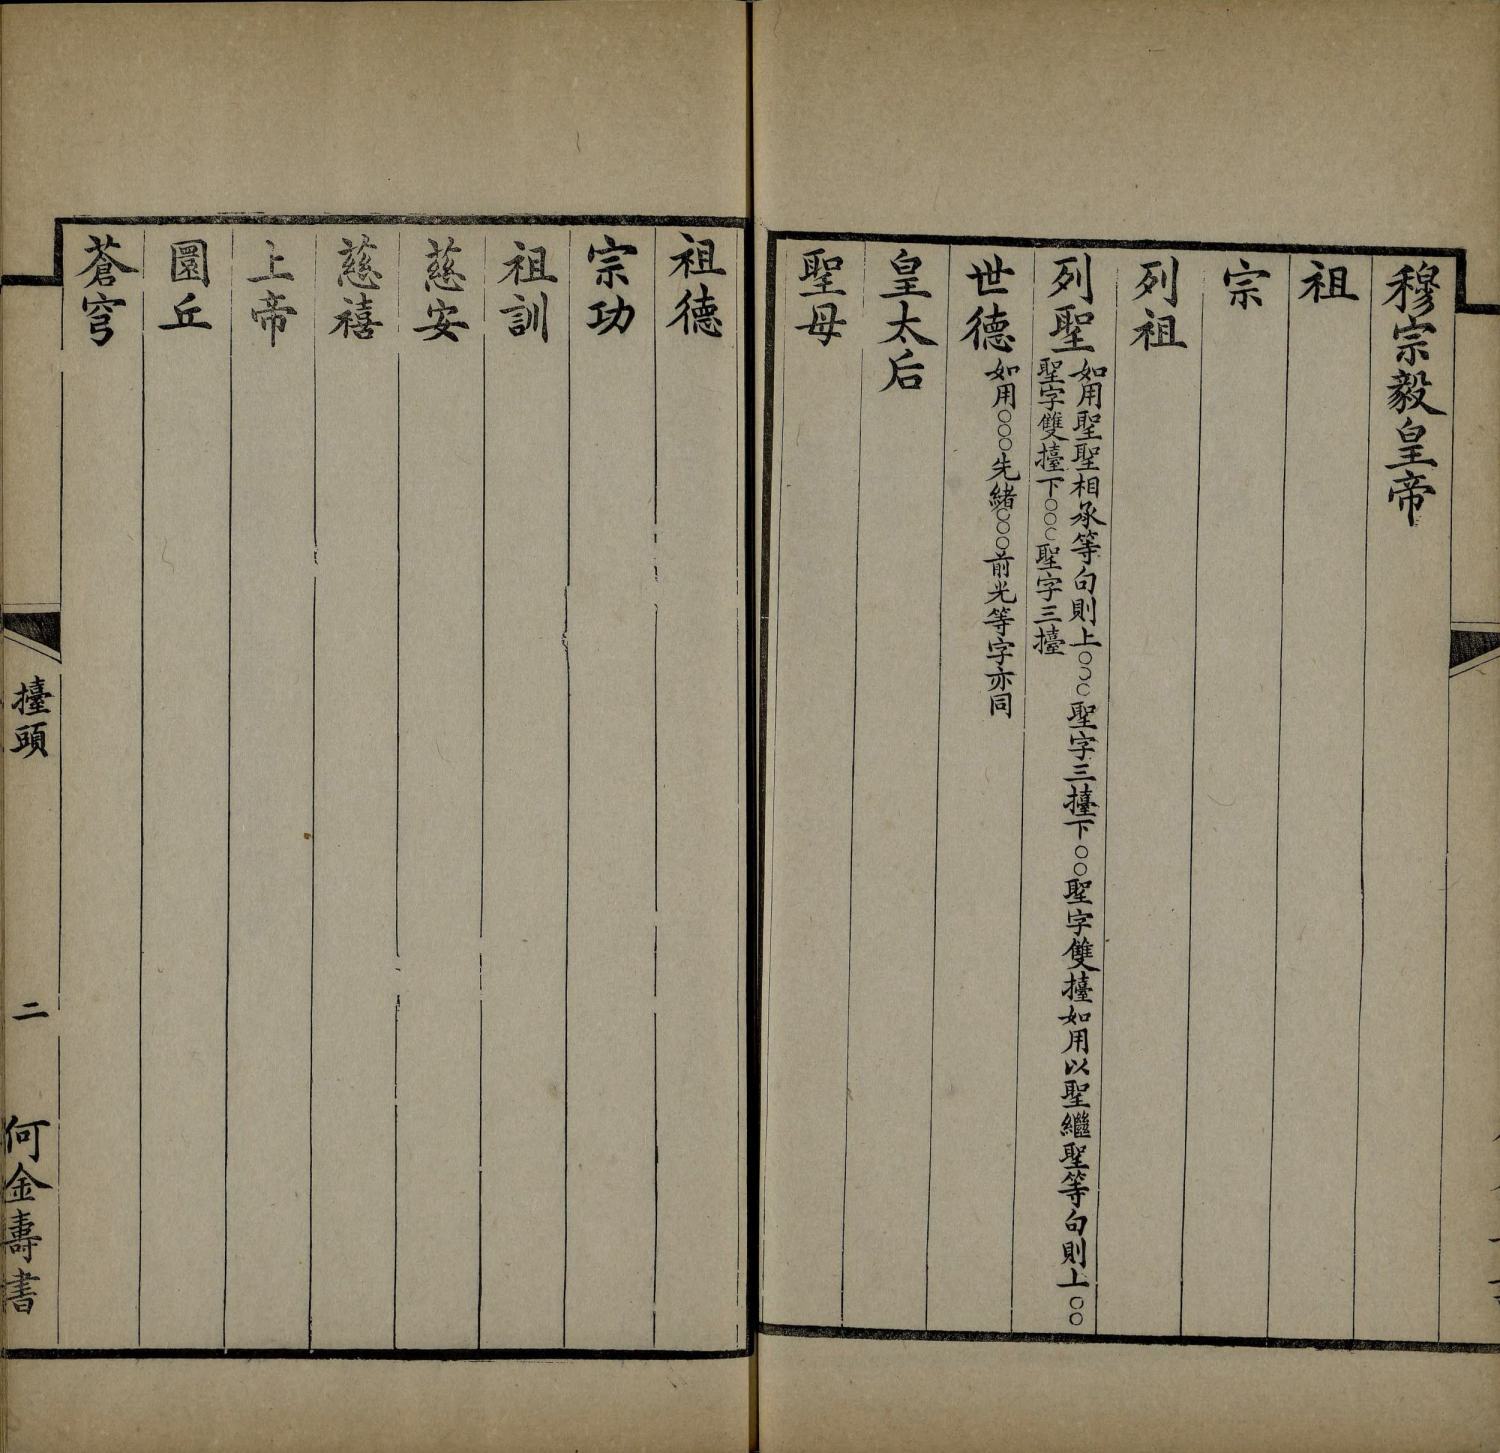 穆宗毅皇帝
祖
宗
列祖
列聖
如用聖聖相承等句則上○○○聖字三擡下○○聖字雙擡如用以聖繼聖等句則上○○
聖字雙擡下○○○聖字三擡
世德
如用○○○先緒○○○前光等字亦同
皇太后
聖母
祖德
宗功
祖訓
慈安
慈禧
上帝
圜丘
蒼穹
擡頭
二
何金壽書